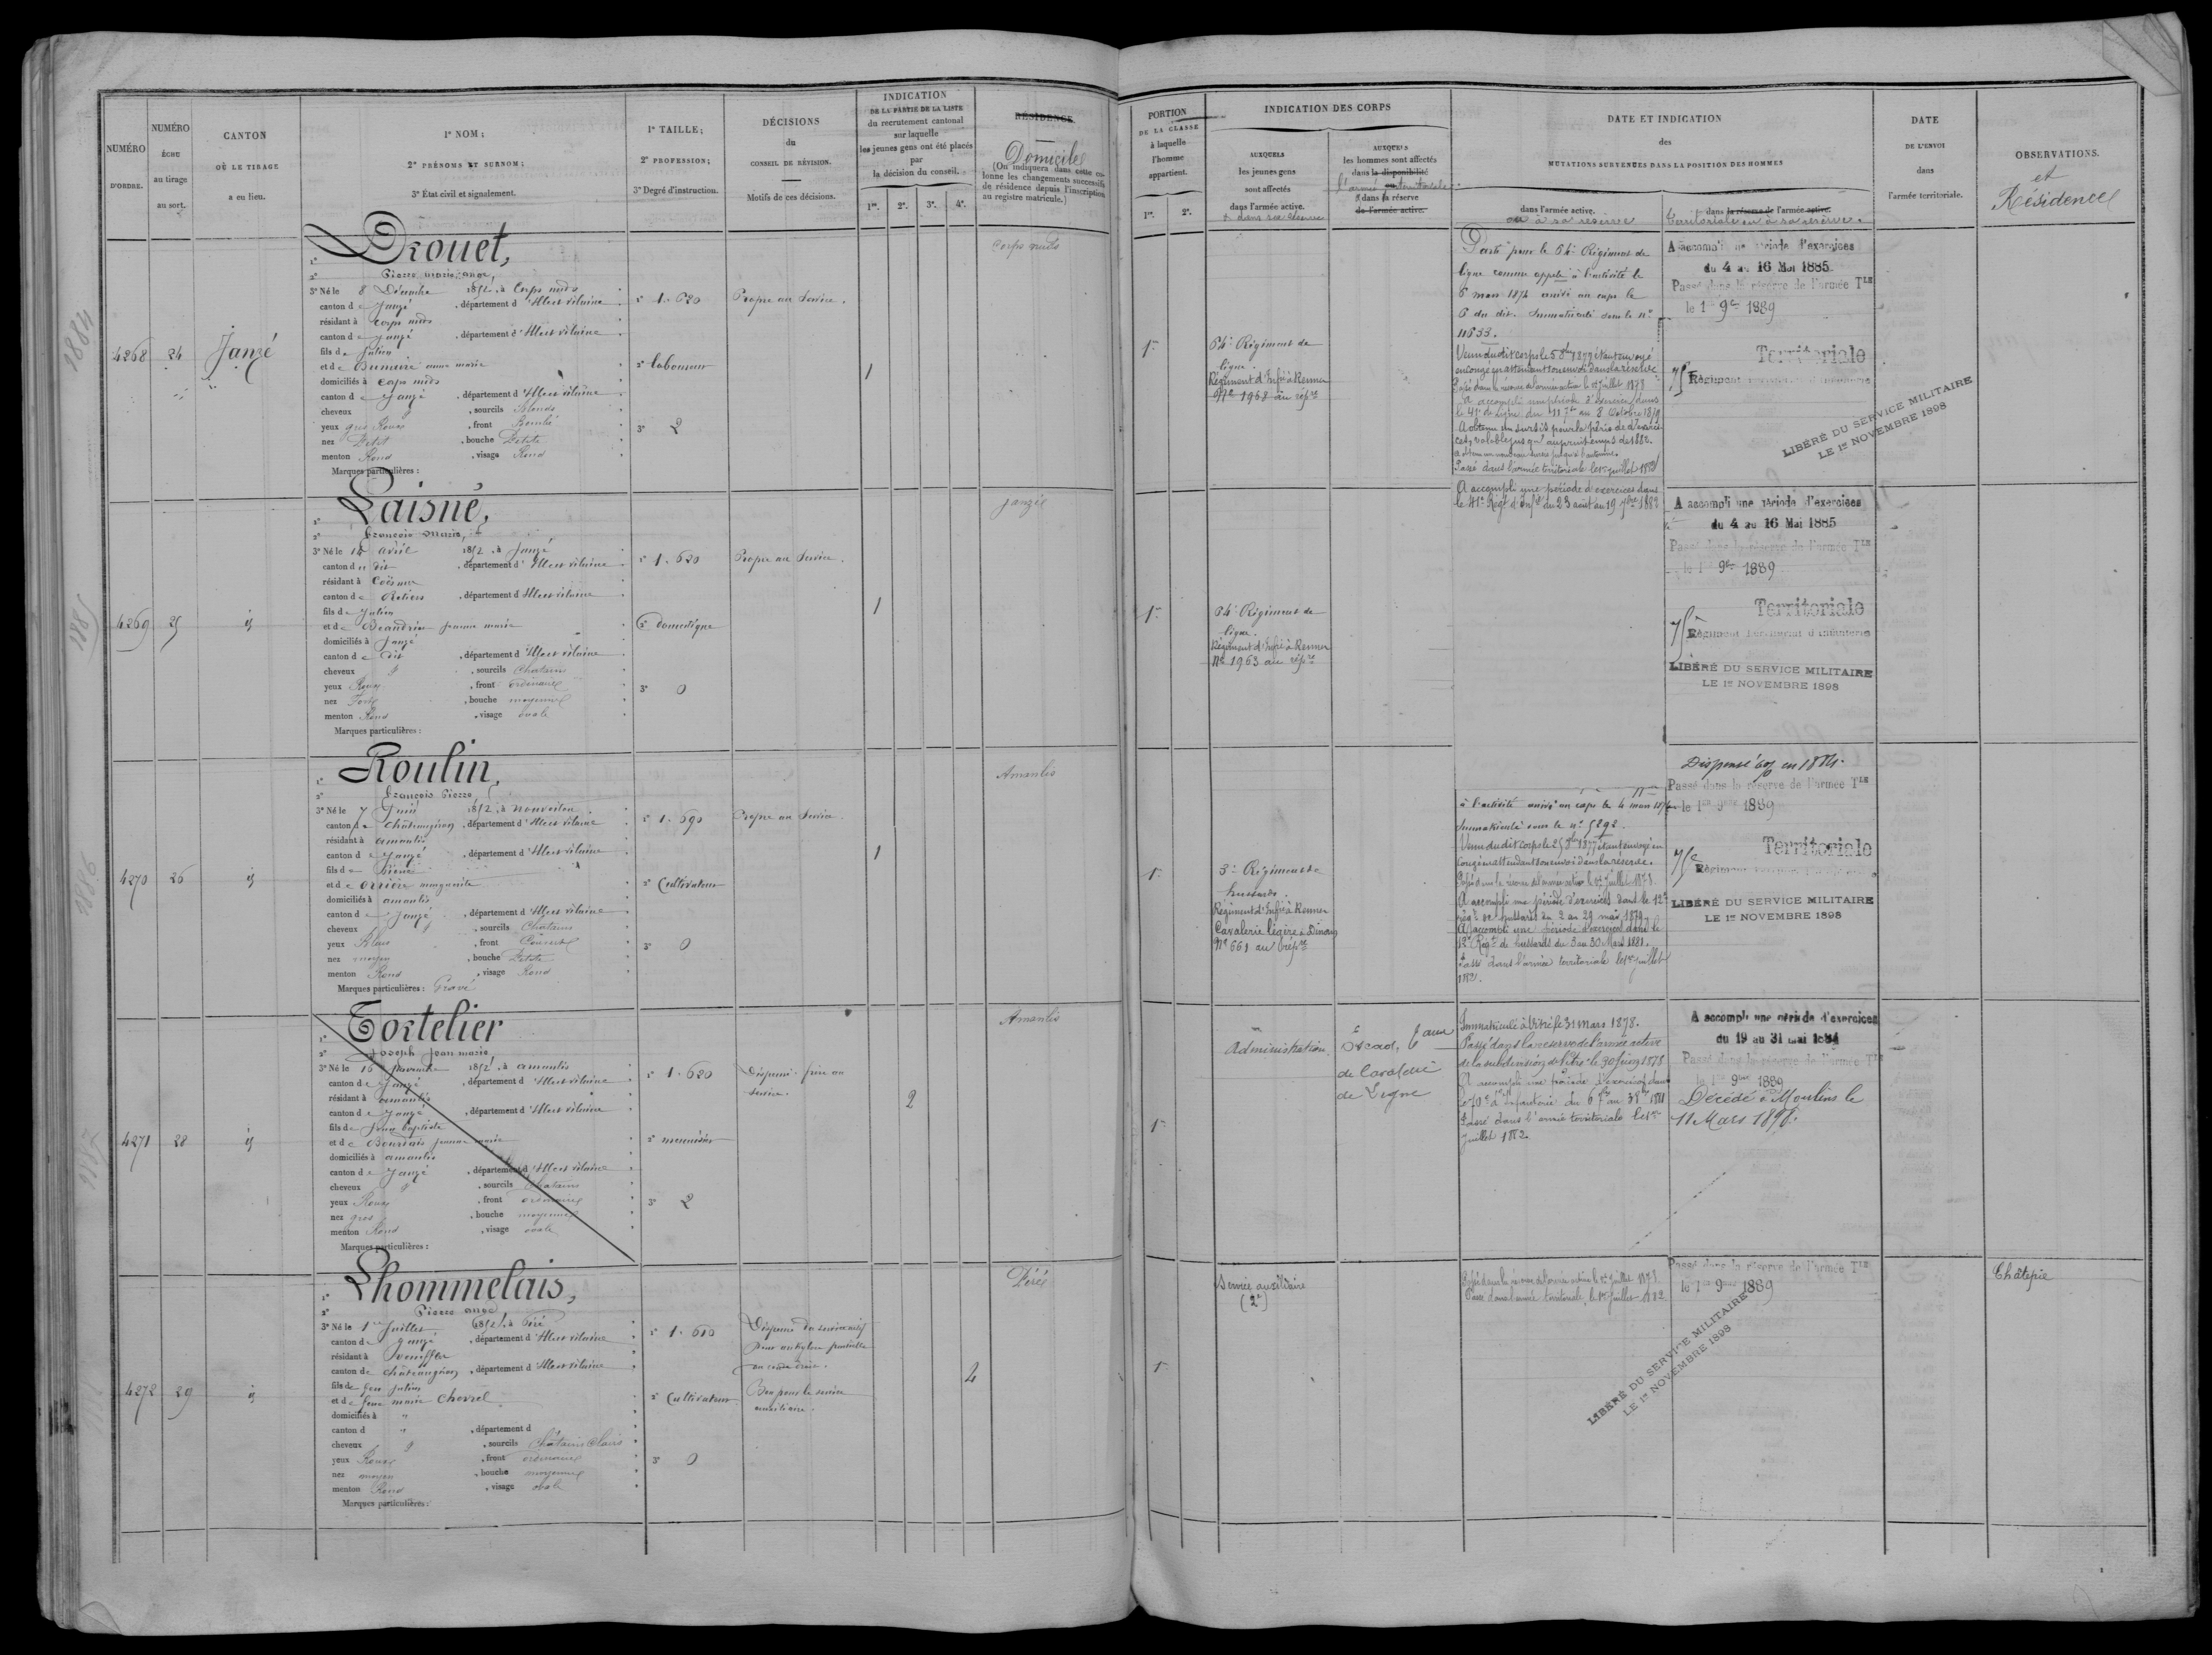 NUMÉRO
D'ORDRE.
NUMÉRO
ÉCHU
au tirage
au sort.
CANTON
OÙ LE TIRAGE
a eu lieu.
1º NOM;
2º PRÉNOMS ET SURNOM;
3º État civil et signalement.
1º TAILLE;
2º PROFESSION;
3º Degré d'instruction.
DÉCISIONS
du
CONSEIL DE RÉVISION.
Motifs de ces décisions.
INDICATION
DE LA PARTIE DE LA LISTE
du recrutement cantonal
sur laquelle
les jeunes gens ont été placés
par
la décision du conseil.
1re. 2e. 3e. 4e.
RÉSIDENCE
Domicile
(On indiquera dans cette co-
lonne les changements successifs
de résidence depuis l'inscription
au registre matricule.)
PORTION
DE LA CLASSE
à laquelle
l'homme
appartient.
1re. 2e.
INDICATION DES CORPS
AUXQUELS
les jeunes gens
sont affectés
dans l'armée active.
AUXQUELS
les hommes sont affectés
dans la disponibilité
l'armée territoriale
dans la réserve
de l'armée active.
DATE ET INDICATION
des
MUTATIONS SURVENUES DANS LA POSITION DES HOMMES
dans l'armée active.
ou à sa réserve
dans la réserve de l'armée active.
territoriale ou à sa réserve.
DATE
DE L'ENVOI
dans
l'armée territoriale.
OBSERVATIONS.
et
Résidence
4268 24 Janzé
Drouet,
Pierre marie ange,
3º Né le 8 Décembre 1852, à Corps nuds
canton de Janzé, département d'Ille et vilaine
résidant à Corps nuds
canton de Janzé, département d'Ille et vilaine
fils de Julien
et de anne marie
domiciliés à Corps nuds
canton de Janzé, département d'Ille et vilaine
cheveux, sourcils blonds
yeux gris Roux, front Bombé
nez Petit, bouche Petite
menton Rond, visage Rond
Marques particulières :
1º 1.620
2º laboureur
3º 2
Propre au Service.
1
Corps nuds
1re
64e Régiment de
ligne.
Régiment d'Infie à Rennes
Nº 1968 au répre
Parti pour le 64e Régiment de
ligne comme appelé à l'activité le
6 mars 1874 arrivé au corps le
6 du dit. Immatriculé sous le nº
11633.
en congé en attendant son envoi dans la réserve
Passé dans la réserve de l'armée active le 1er Juillet 1878
a accompli une période d'exercices dans
le 41e de ligne du 11 7bre au 8 Octobre 1879
Passé dans l'armée territoriale le 1er Juillet 1882
A accompli une période d'exercices dans
le 41e Régt d'Infie du 23 août au 19 7bre 1882
A accompli une période d'exercices
du 4 au 16 Mai 1885
Passé dans la réserve de l'armée Tle
le 1er 9bre 1889
Territoriale
75e Régiment territorial d'infanterie
LIBÉRÉ DU SERVICE MILITAIRE
LE 1er NOVEMBRE 1898
4269 25 id
Laisné,
François Marie,
3º Né le 14 avril 1852, à Janzé
canton du dit, département d'Ille et vilaine
résidant à Coësmes
canton de Retiers, département d'Ille et vilaine
fils de Julien
et de Beaudrin jeanne marie
domiciliés à Janzé
canton du dit, département d'Ille et vilaine
cheveux, sourcils Chatains
yeux Roux, front ordinaire
nez Fort, bouche moyenne
menton Rond, visage ovale
Marques particulières :
1º 1.620
2º domestique
3º 0
Propre au Service.
1
Janzé
1re
64e Régiment de
ligne.
Régiment d'Infie à Rennes
Nº 1963 au répre
A accompli une période d'exercices
du 4 au 16 Mai 1885
Passé dans la réserve de l'armée Tle
le 1er 9bre 1889
Territoriale
75e Régiment territorial d'infanterie
LIBÉRÉ DU SERVICE MILITAIRE
LE 1er NOVEMBRE 1898
4270 26 id
Roulin,
François Pierre,
3º Né le 7 Juin 1852, à Nouvoitou
canton de Châteaugiron, département d'Ille et vilaine
résidant à amanlis
canton de Janzé, département d'Ille et vilaine
fils de Pierre
et de orrière marguerite
domiciliés à amanlis
canton de Janzé, département d'Ille et vilaine
cheveux, sourcils Chatains
yeux Bleus, front Couvert
nez moyen, bouche Petite
menton Rond, visage Rond
Marques particulières : Gravé
1º 1.690
2º Cultivateur
3º 0
Propre au Service.
1
Amanlis
1re
3e Régiment de
hussards.
Régiment d'Infie à Rennes
Cavalerie légère à Dinan
Nº 661 au répre
à l'activité arrivé au corps le 4 mars 1874
Immatriculé sous le nº 5292.
congé en attendant son envoi dans la réserve.
Passé dans la réserve de l'armée active le 1er Juillet 1878.
A accompli une période d'exercices dans le 12e
Régt de hussards du 2 au 29 mai 1879.
A accompli une période d'exercices dans le
12e Régt de hussards du 3 au 30 Mars 1881.
Passé dans l'armée territoriale le 1er juillet
1882.
Dispensé en 1884.
Passé dans la réserve de l'armée Tle
le 1er 9bre 1889
Territoriale
75e Régiment territorial d'infanterie
LIBÉRÉ DU SERVICE MILITAIRE
LE 1er NOVEMBRE 1898
4271 28 id
Tortelier
Joseph Jean marie
3º Né le 16 novembre 1852, à amanlis
canton de Janzé, département d'Ille et vilaine
résidant à amanlis
canton de Janzé, département d'Ille et vilaine
fils de Jean baptiste
et de Bourdais jeanne marie
domiciliés à amanlis
canton de Janzé, département d'Ille et vilaine
cheveux, sourcils Chatains
yeux Roux, front ordinaire
nez gros, bouche moyenne
menton Rond, visage ovale
Marques particulières :
1º 1.620
2º menuisier
3º 2
Dispensé. frère au
service.
2
Amanlis
1re
Administration
de Cavalerie
de Ligne
Immatriculé à Vitré le 31 Mars 1878.
Passé dans la réserve de l'armée active
de la subdivision de Vitré le 30 juin 1878
A accompli une période d'exercices dans
Passé dans l'armée territoriale le 1er
Juillet 1882.
A accompli une période d'exercices
du 19 au 31 mai 1884
Passé dans la réserve de l'armée Tle
le 1er 9bre 1889
Décédé à Moulins le
11 Mars 1896.
4272 29 id
Lhommelais,
Pierre ange
3º Né le 1er Juillet 1852, à Piré
canton de Janzé, département d'Ille et vilaine
résidant à Venèffles
canton de Châteaugiron, département d'Ille et vilaine
fils de feu Julien
et de feue marie Chevrel
domiciliés à "
canton d ", département d
cheveux, sourcils Châtains Clairs
yeux Roux, front ordinaire
nez moyen, bouche moyenne
menton Rond, visage ovale
Marques particulières :
1º 1.610
2º Cultivateur
3º 0
Dispensé du service actif
pour ankylose partielle
du coude droit.
Bon pour le service
auxiliaire.
4
Piré
1re
Service auxiliaire
(2e)
Passé dans la réserve de l'armée active le 1er Juillet 1878
Passé dans l'armée territoriale, le 1er Juillet 1882
Passé dans la réserve de l'armée Tle
le 1er 9bre 1889
LIBÉRÉ DU SERVICE MILITAIRE
LE 1er NOVEMBRE 1898
1884
1885
1886